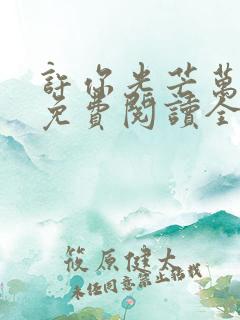 許你光芒萬
免費閱讀全
筱原健太
未经同意禁止转载